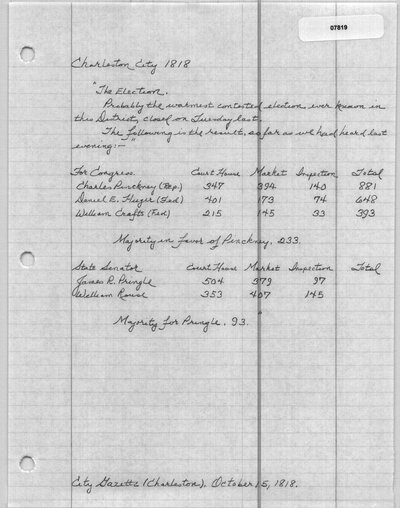 07819
Charleston City 1818
"The Election.
Probably the warmest contested election ever known in
this District, closed on Tuesday last.
The following is the result, as far as we had heard last
evening:—"
For Congress Court House Market Inspection Total
Charles Pinckney (Rep.) 347 394 140 881
Daniel E. Huger (Fed) 401 173 74 648
William Crafts (Fed) 215 145 33 393
Majority in Favor of Pinckney, 233.
State Senator Court House Market Inspection Total
James R. Pringle 504 379 97
William Rouse 353 407 145
Majority for Pringle. 93."
City Gazette (Charleston). October 15, 1818.